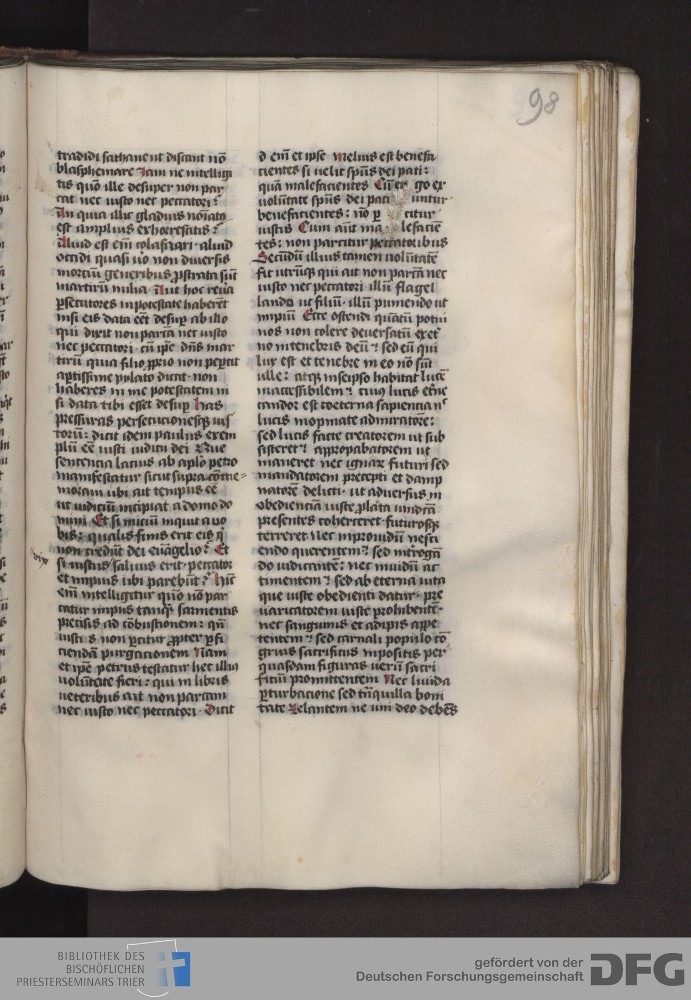 98
tradidi sathane ut discant nō
blasphemare Iam ne intelligi
tis quō ille desuper non par
cat nec iusto nec peccatori ?
An quia illic gladius noīatᵒ
est amplius exhorrestitis ?
Aliud est em̄ colafizari · aliud
occidi quasi uo non diuersis
mortiū generibus ꝓstrata sūt
martirū milia · Aut hoc reūa
ꝑsecutores in potestate haberēt
nisi eis data eēt desuꝑ ab illo
qui dixit non parcā nec iusto
nec peccatori · cū ip̄e dn̄s mar
tirū quia filio ꝓprio non peꝑcit
aꝑtissime pylato dicat · non
haberes in me potestatem ni
si data tibi esset desuꝑ Has
pressuras persecutionesqꝫ ius
torū : dicit idem paulus exem
plū eē iusti iudicii dei Que
sententia latius ab aplo petro
manifestatur sicut supra cōme
moraui ubi ait tempus eē
ut iudiciū incipiat a domo do
mini Et si iniciū inquit a uo
bis : qualis finis erit eis q̄
non credūt dei euāgelio ? Et
vix
si iustus saluus erit · peccator
et impius ubi parebūt ? Hīc
em̄ intelligitur quō nō par
catur impiis tanqꝫ sarmentis
precisis ad cōbustionem : qn̄
iusti s non ꝑcitur ꝓpter ꝑfi
ciendā purgacionem Nam
et ip̄e petrus testatur hec illiᵒ
uolūtate fieri : qui in libris
ueteribus ait non parcam
nec iusto nec peccatori · Dicit
d em̄ et ipse melius est benefa
cientes si uelit spūs dei pati :
quā malefacientes Cū er go ex
uolūtate spūs dei pati untur
benefacientes : nō ꝑ citur
iustis Cum aūt ma lefacien
tes : non parcitur peccatoribus
Secūdū illius tamen uolūtatē
fit utrūqꝫ qui ait non parcā nec
iusto nec peccatori illū flagel
lando ut filiū · illū puniendo ut
impiū Ecce ostendi quātū potui
nos non colere deuersatū ex et
no in tenebris deū : sed eū qui
lux est et tenebre in eo nō sūt
ulle : atqꝫ in seipso habitat lucē
inaccessibilem : cuius lucis et̄ne
candor est coeterna sapiencia nō
lucis inopinate admiratorē :
sed lucis facte creatorem ut sub
sisteret : appropabatorem ut
maneret nec ignarū futuri sed
mandatorem precepti et damp
natorē delicti · ut aduersus in
obedienciā iuste ꝓlata uindcā
presentes coherceret futurosqꝫ
terreret Nec improuidū nesci
endo querentem : sed intoga
do iudicantē : nec inuidū ac
timentem : sed ab eterna uita
que iuste obedienti datur · pre
uaricatorem iuste prohibentē ·
nec sanguinis et adipis appe
tentem : sed carnali populo cō
gruis sacrificiis inpositis per
quasdam figuras uerū sacri
ficiū promittentem Nec liuida
ꝑturbacione sed trāquilla boni
tate zelantem ne uni deo debēs
BIBLIOTHEK DES
BISCHÖFLICHEN
PRIESTERSEMINARS TRIER
gefördert von der
Deutschen Forschungsgemeinschaft
DFG